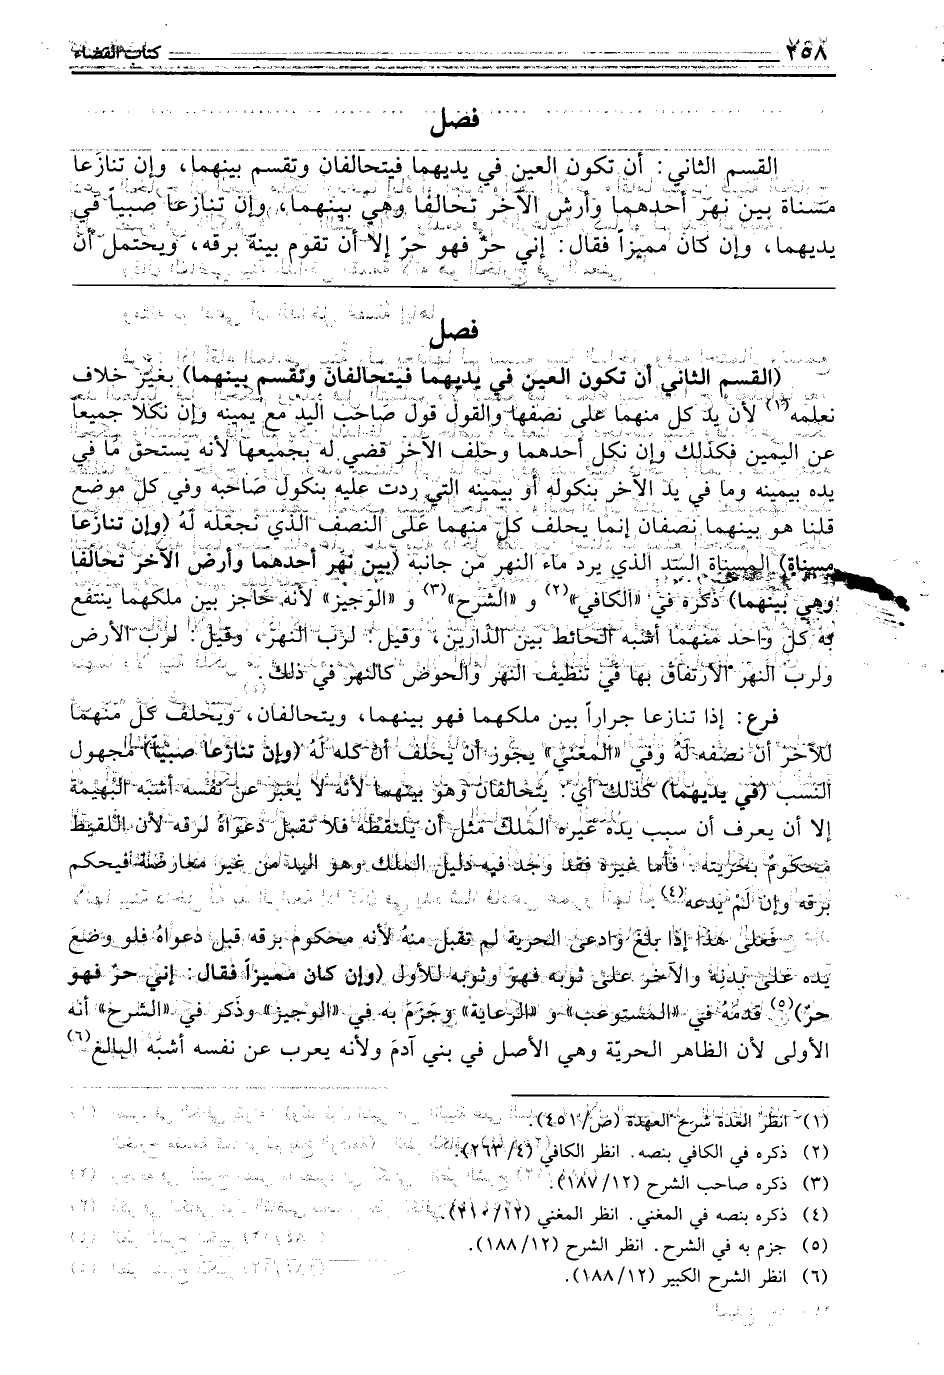 ٢٥٨ كتاب القضاء
فصل
القسم الثاني: أن تكون العين في يديهما فيتحالفان وتقسم بينهما، وإن تنازعا
مسناة بين نهر أحدهما وأرض الآخر تحالفا وهي بينهما، وإن تنازعا صبياً في
يديهما، وإن كان مميزاً فقال: إني حرٌّ فهو حرّ إلا أن تقوم بينة برقه، ويحتمل أن
فصل
(القسم الثاني أن تكون العين في يديهما فيتحالفان وتقسم بينهما) بغير خلاف
نعلمه(١) لأن يد كل منهما على نصفها والقول قول صاحب اليد مع يمينه وإن نكلا جميعاً
عن اليمين فكذلك وإن نكل أحدهما وحلف الآخر قضي له بجميعها لأنه يستحق ما في
يده بيمينه وما في يد الآخر بنكوله أو بيمينه التي ردت عليه بنكول صاحبه وفي كل موضع
قلنا هو بينهما نصفان إنما يحلف كل منهما على النصف الذي نجعله له (وإن تنازعا
مسناة) المسناة السد الذي يرد ماء النهر من جانبه (بين نهر أحدهما وأرض الآخر تحالفا
وهي بينهما) ذكره في «الكافي»(٢) و «الشرح»(٣) و «الوجيز» لأنه حاجز بين ملكهما ينتفع
به كل واحد منهما أشبه الحائط بين الدارين، وقيل: لرب النهر، وقيل: لرب الأرض
ولرب النهر الارتفاق بها في تنظيف النهر والحوض كالنهر في ذلك.
فرع: إذا تنازعا جراراً بين ملكهما فهو بينهما، ويتحالفان، ويحلف كل منهما
للآخر أن نصفه له وفي «المغني» يجوز أن يحلف أن كله له (وإن تنازعا صبياً) مجهول
النسب (في يديهما) كذلك أي: يتحالفان وهو بينهما لأنه لا يعبر عن نفسه أشبه البهيمة
إلا أن يعرف أن سبب يده غير الملك مثل أن يلتقطه فلا تقبل دعواه لرقه لأن اللقيط
محكوم بحريته. فأما غيره فقد وجد فيه دليل الملك وهو اليد من غير معارضة فيحكم
برقه وإن لم يدعه(٤).
فعلى هذا إذا بلغ وادعى الحرية لم تقبل منه لأنه محكوم برقه قبل دعواه فلو وضع
يده على بدنه والآخر على ثوبه فهو وثوبه للأول (وإن كان مميزاً فقال: إني حرّ فهو
حرّ)(٥) قدمه في «المستوعب» و «الرعاية» وجزم به في «الوجيز» وذكر في «الشرح» أنه
الأولى لأن الظاهر الحريّة وهي الأصل في بني آدم ولأنه يعرب عن نفسه أشبه البالغ(٦)
(١) انظر العدة شرح العمدة (ص/٤٥١).
(٢) ذكره في الكافي بنصه. انظر الكافي (٤/٢٦٣).
(٣) ذكره صاحب الشرح (١٢/١٨٧).
(٤) ذكره بنصه في المغني. انظر المغني (١٢/٢١٠).
(٥) جزم به في الشرح. انظر الشرح (١٢/١٨٨).
(٦) انظر الشرح الكبير (١٢/١٨٨).